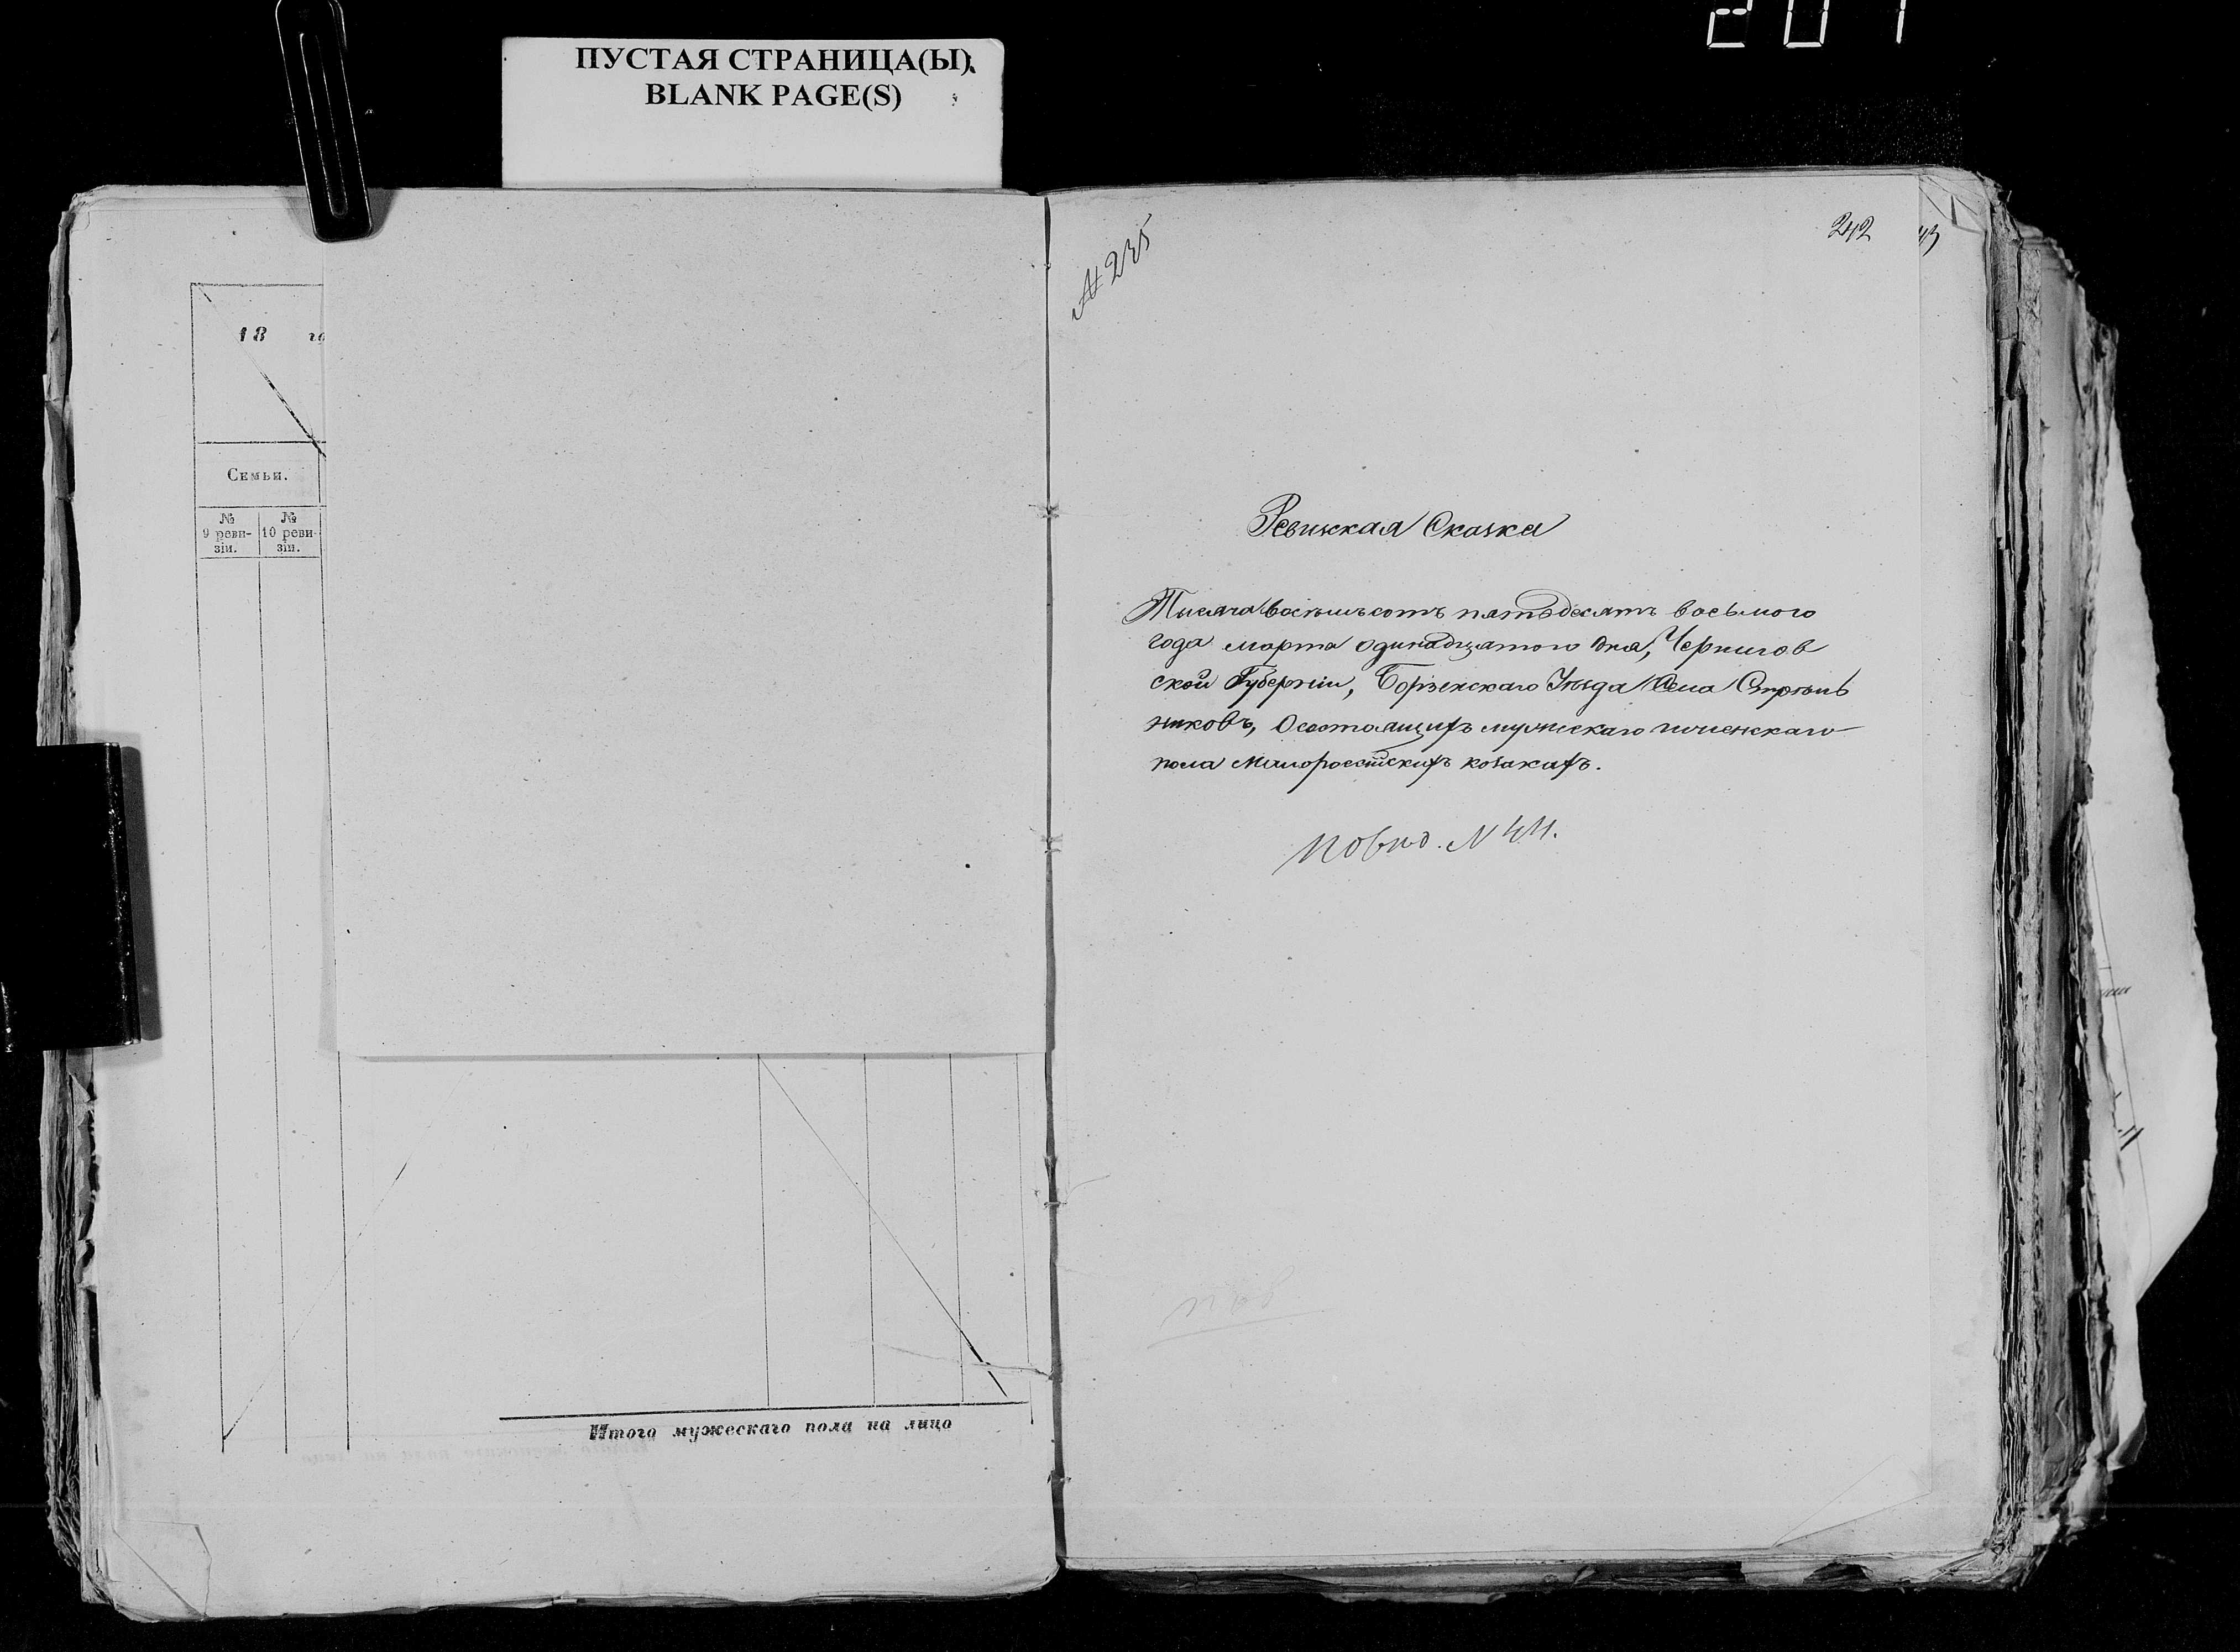 207
ПУСТАЯ СТРАНИЦА(Ы).
BLANK PAGE(S)
18 го
Семьи.
№ 9 реви-зіи.
№ 10 реви-зіи.
Итого мужескаго пола на лицо
№ 235
242
43
Ревижкая Сказка
Тысяча восемьсотъ пятьдесятъ восьмого
года марта одинадцатого дня, Чернигов
ской Губерніи, Борзенскаго Уѣзда Села Стрѣль
никовъ, О состоящихъ мужескаго и женскаго
пола Малороссійскихъ козакахъ.
№ 44.